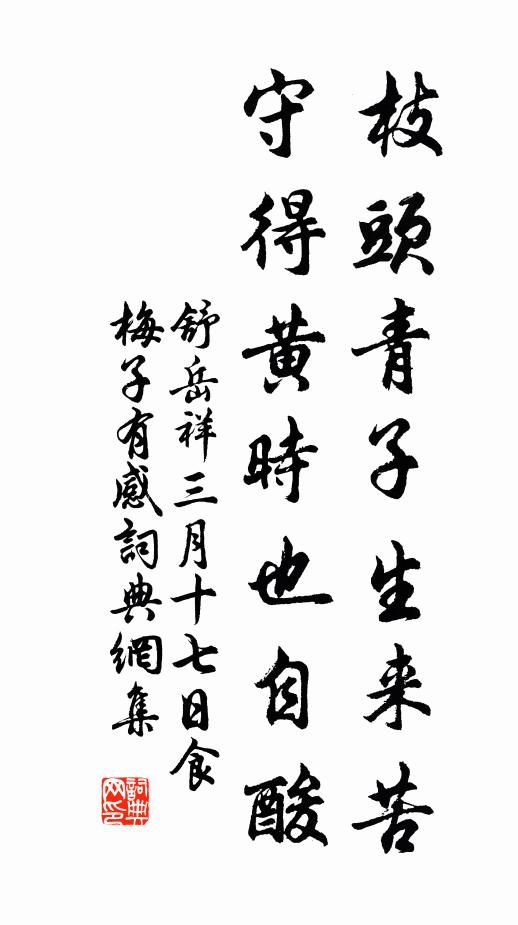 枝頭青子生来苦
守得黄時也自酸
舒岳祥三月十七日食
梅子有感詞典網集
詞典网印